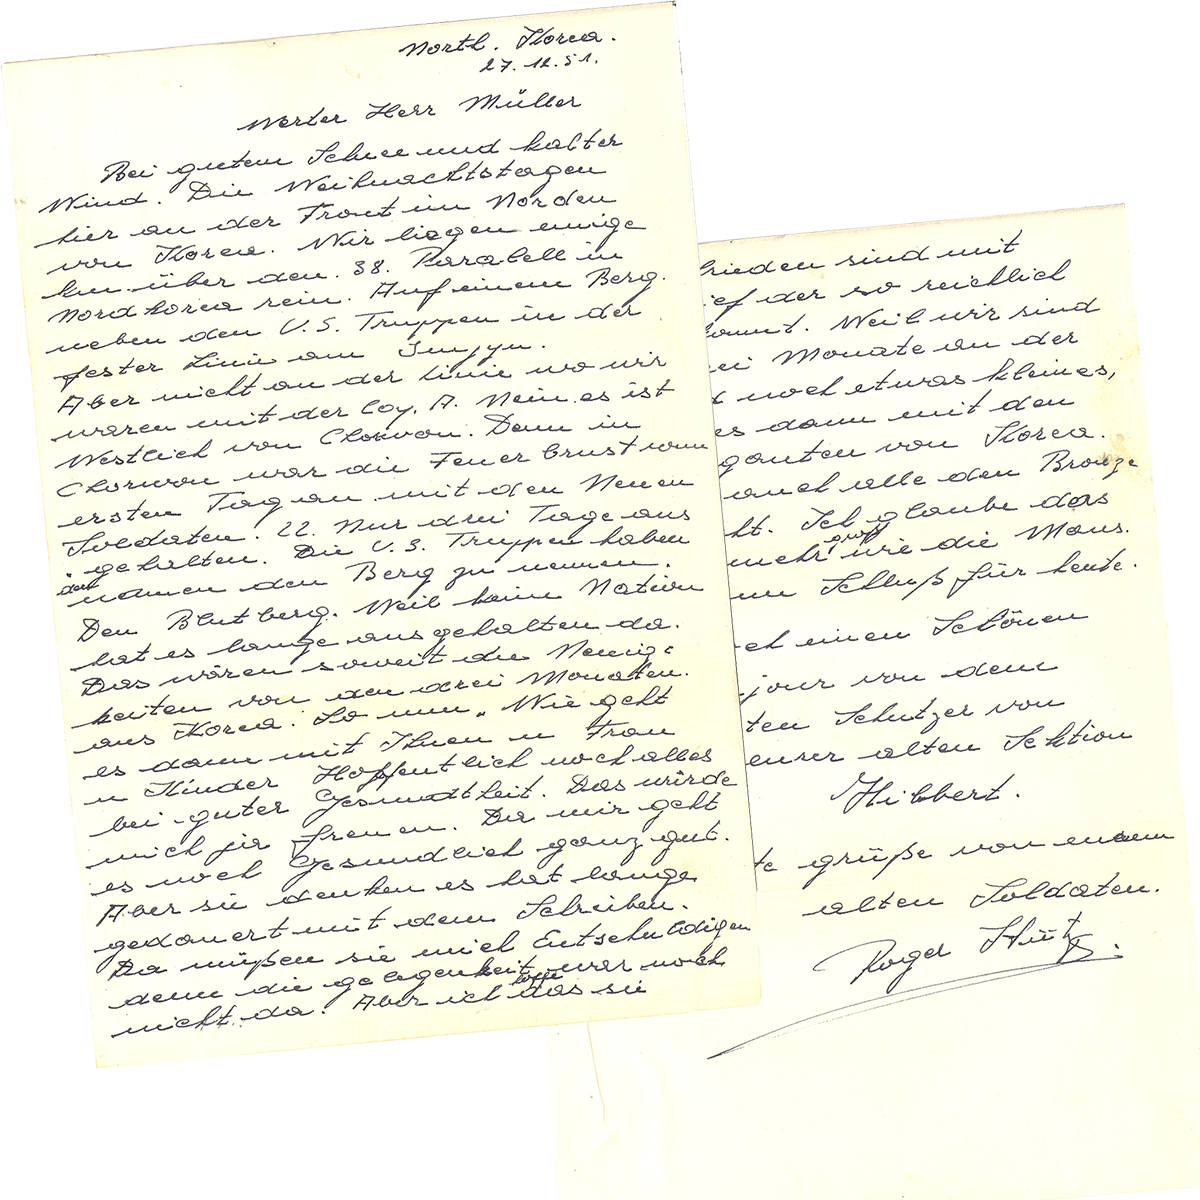 North. Korea.
27.12.51.
Werter Herr Müller
Bei gutem Schnee und kalter
Wind. Die Weihnachtstagen
hier an der Front im Norden
von Korea. Wir liegen einige
km über den 38. Paralell in
Nordkorea rein. Auf einem Berg.
neben den U.S. Truppen in der
fester Linie am Imjyn.
Aber nicht an der Linie wo wir
waren mit der Coy. A. Nein es ist
Westlich von Chorwon. Denn in
Chorwon war die Feuer brust vom
ersten Tag an mit den Neuen
Soldaten. 22. Nur drei Tage aus
gehalten. Die U.S. Truppen haben
den
namen den Berg zu nennen.
Den Blutberg. Weil keine Nation
hat es lange ausgehalten da.
Das wären soweit die Neuig-
keiten von den drei Monaten.
aus Korea. So nun, Wie geht
es dann mit Ihnen u Frau
u Kinder Hoffentlich noch alles
bei guter Gesundtheit. Das würde
mich für freuen. Da mir geht
es noch Gesundlich ganz gut.
Aber sie denken es hat lange
gedauert mit dem Schreiben.
Da müßen sie mich Entschuldigen
denn die gelegenheit war noch
nicht da. Aber ich hoffe das sie
rieden sind mit
ief der so reichlich
kommt. Weil wir sind
ei Monate an der
d noch etwas kleines,
es dann mit den
ganten von Korea.
auch alle den Bronze
ht. Ich glaube das
mehr wie die Mons.
m Schluß für heute.
ch einen Schönen
jour von dem
ten Schutzer von
eurer alten Sektion
Hibbert.
te grüße von einem
alten Soldaten.
Roger Stütz.